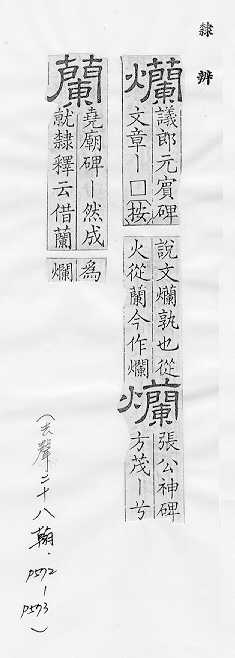 隸辨
爛
議郎元賓碑
文章丨囗按
說文爛孰也從
火從蘭今作爛
爛
張公神碑
方茂丨兮
蘭
堯廟碑丨然成
就隸釋云借蘭
為
爛
(去聲二十八翰. p572-p573)